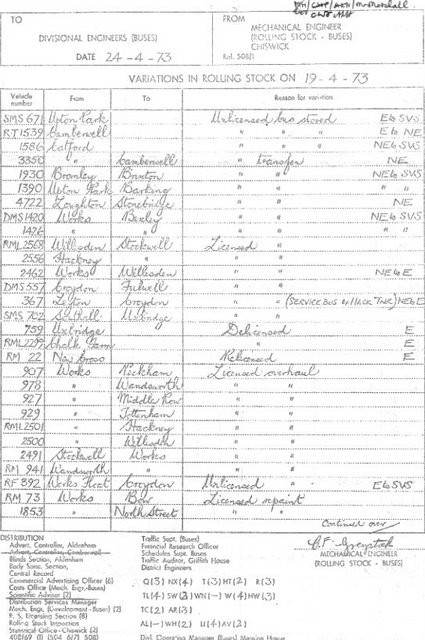 TO
DIVISIONAL ENGINEERS (BUSES)
DATE 24-4-73
FROM
MECHANICAL ENGINEER
(ROLLING STOCK - BUSES)
CHISWICK
Ref. 508/1
VARIATIONS IN ROLLING STOCK ON 19-4-73
Vehicle number From To Reason for variation
SMS 671 Upton Park Unlicensed bus stored E to SVS
RT 1539 Camberwell " " " E to NE
1586 Catford " " " NE to SVS
3350 " Camberwell " transfer NE
1930 Bromley Brixton " " NE to SVS
1390 Upton Park Barking " " " "
4722 Loughton Stonebridge " " NE
DMS 1420 Works Bexley " " NE to SVS
1426 " " " " " "
RML 2568 Willesden Stockwell Licensed "
2556 Hackney " " "
2462 Works Willesden " " NE to E
DMS 557 Croydon Fulwell " "
367 Leyton Croydon " " (SERVICE BUS NE to E
SMS 702 Southall Uxbridge " "
759 Uxbridge Delicensed E
RML 2299 Chalk Farm " E
RM 22 New Cross Relicensed E
907 Works Peckham Licensed overhaul
978 " Wandsworth " "
927 " Middle Row " "
929 " Tottenham " "
RML 2501 " Hackney " "
2500 " Willesden " "
2491 Stockwell Works " "
RM 941 Wandsworth " " "
RF 392 Works Float Croydon Unlicensed " E to SVS
RM 73 Works Bow Licensed repaint
1853 " North Street " "
Continued over
MECHANICAL ENGINEER
(ROLLING STOCK - BUSES)
DISTRIBUTION
Advert. Controller, Aldenham
Advert. Controller, Camberwell
Blinds Section, Aldenham
Early Sums. Section,
Central Record
Commercial Advertising Officer (6)
Costs Office (Mech. Engr.-Buses)
Scientific Adviser (2)
Distribution Services Manager
Mech. Engr. (Development - Buses) (2)
R. S. Licensing Section (8)
Rolling Stock Inspection
Statistical Office - Chiswick (2)
Traffic Supt. (Buses)
Financial Research Officer
Schedules Supt. Buses
Traffic Auditor, Griffith House
District Engineers
Q(3) NX(4) T(3) HT(2) R(3)
TL(4) SW(3) WN(-) W(4) HW(3)
TC(2) AR(3)
AL(-) WH(2) U(4) AV(2)
Divl. Operating Manager (Buses) Mansion House